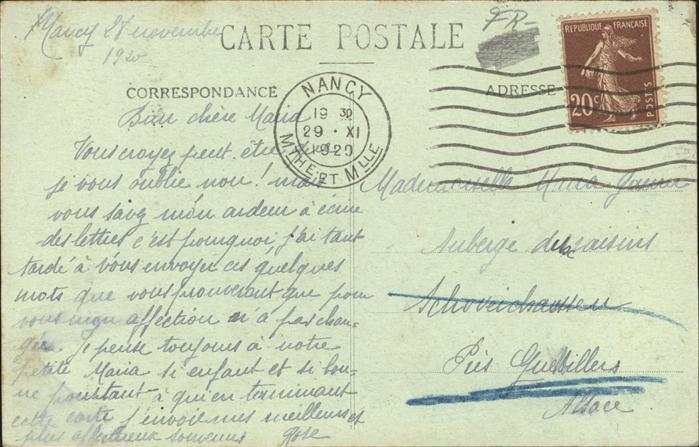 Nancy 28 novembre
1920
CARTE POSTALE
FR-
REPUBLIQUE FRANÇAISE
20c
POSTES
CORRESPONDANCE
ADRESSE
NANCY
19 30
29 · XI
1920
MTHE ET MLLE
Bien chère Maria
Vous croyez peut-être que
je vous oublie non! mais
vous savez mon ardeur à écrire
des lettres c'est pourquoi, j'ai tant
tardé à vous envoyer ces quelques
mots que vous prouveront que pour
vous mon affection n'a pas chan-
gée. Je pense toujours à notre
petite Maria si enfant et si bon-
ne pourtant à qui en terminant
cette carte j'envoie mes meilleurs et
plus affectueux souvenirs Rose
Mademoiselle Maria
Auberge des raisins
Près Guebviller
Alsace